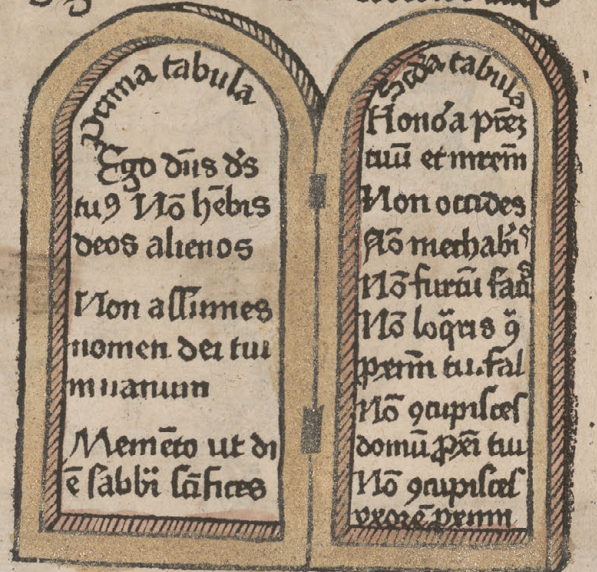 Prima tabula
Ego dn̄s ds̄
tuꝰ Nō hēbis
deos alienos
Non aſſumes
nomen dei tui
in uanum
Memēto ut di
ē ſabbi ſcīfices
Scda tabula
Honoꝛa pr̄eꝫ
tuū et mr̄em
Non occides
Nō mechabis
Nō furtū faciꝰ
Nō loq̄ris ꝯ
ꝓximū tuū fal
Nō ꝯcupiſceſ
domū ꝓxī tui
Nō ꝯcupiſceſ
vxorē ꝓximi